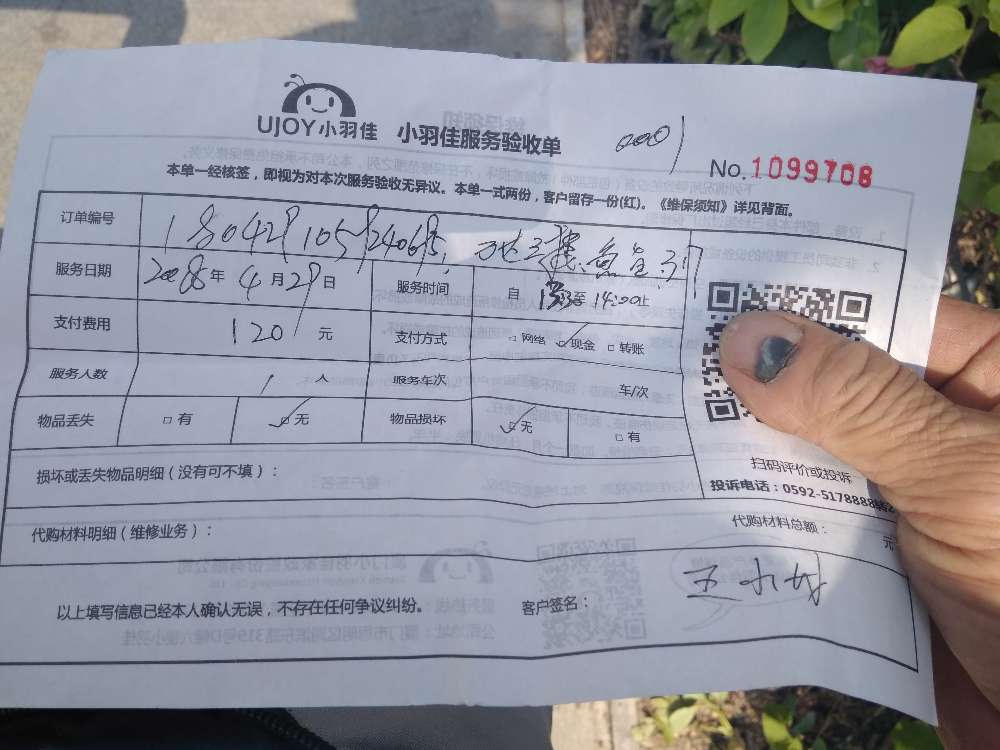 UJOY小羽佳 小羽佳服务验收单 0001
No.1099708
本单一经核签，即视为对本次服务验收无异议。本单一式两份，客户留存一份(红)。《维保须知》详见背面。
订单编号
服务日期 年 4 月 29 日 服务时间 自 至 14:00止
支付费用 120 元 支付方式 □网络 ☑现金 □转账
服务人数 1 人 服务车次 车/次
物品丢失 □有 ☑无 物品损坏 ☑无 □有
损坏或丢失物品明细（没有可不填）：
扫码评价或投诉
投诉电话：0592-5178888转2
代购材料明细（维修业务）： 代购材料总额： 元
以上填写信息已经本人确认无误，不存在任何争议纠纷。 客户签名：